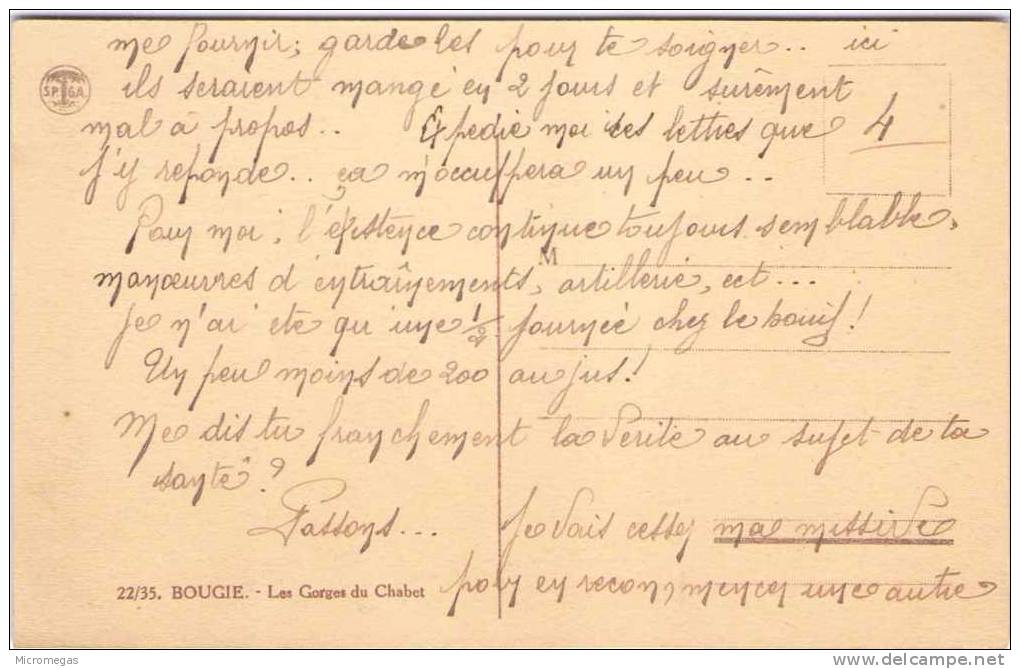 me fournir; garde les pour te soigner.. ici
ils seraient mangé en 2 jours et surêment
mal à propos.. Expedie moi les lettres que 4
j'y reponde.. ça m'occuppera un peu..
SP GA
Pour moi, l'éxistence continue toujours semblable,
M
manœuvres d'entraînements, artillerie, ect...
Je n'ai eté qu'une 1/2 journeé chez le bouif!
Un peu moins de 200 au jus!
Me dis tu franchement la Verité au sujet de ta
santé?
Passons... Je vais cesser ma missive
pour en recommencer une autre
22/35. BOUGIE. - Les Gorges du Chabet
Micromegas
delcampe.net